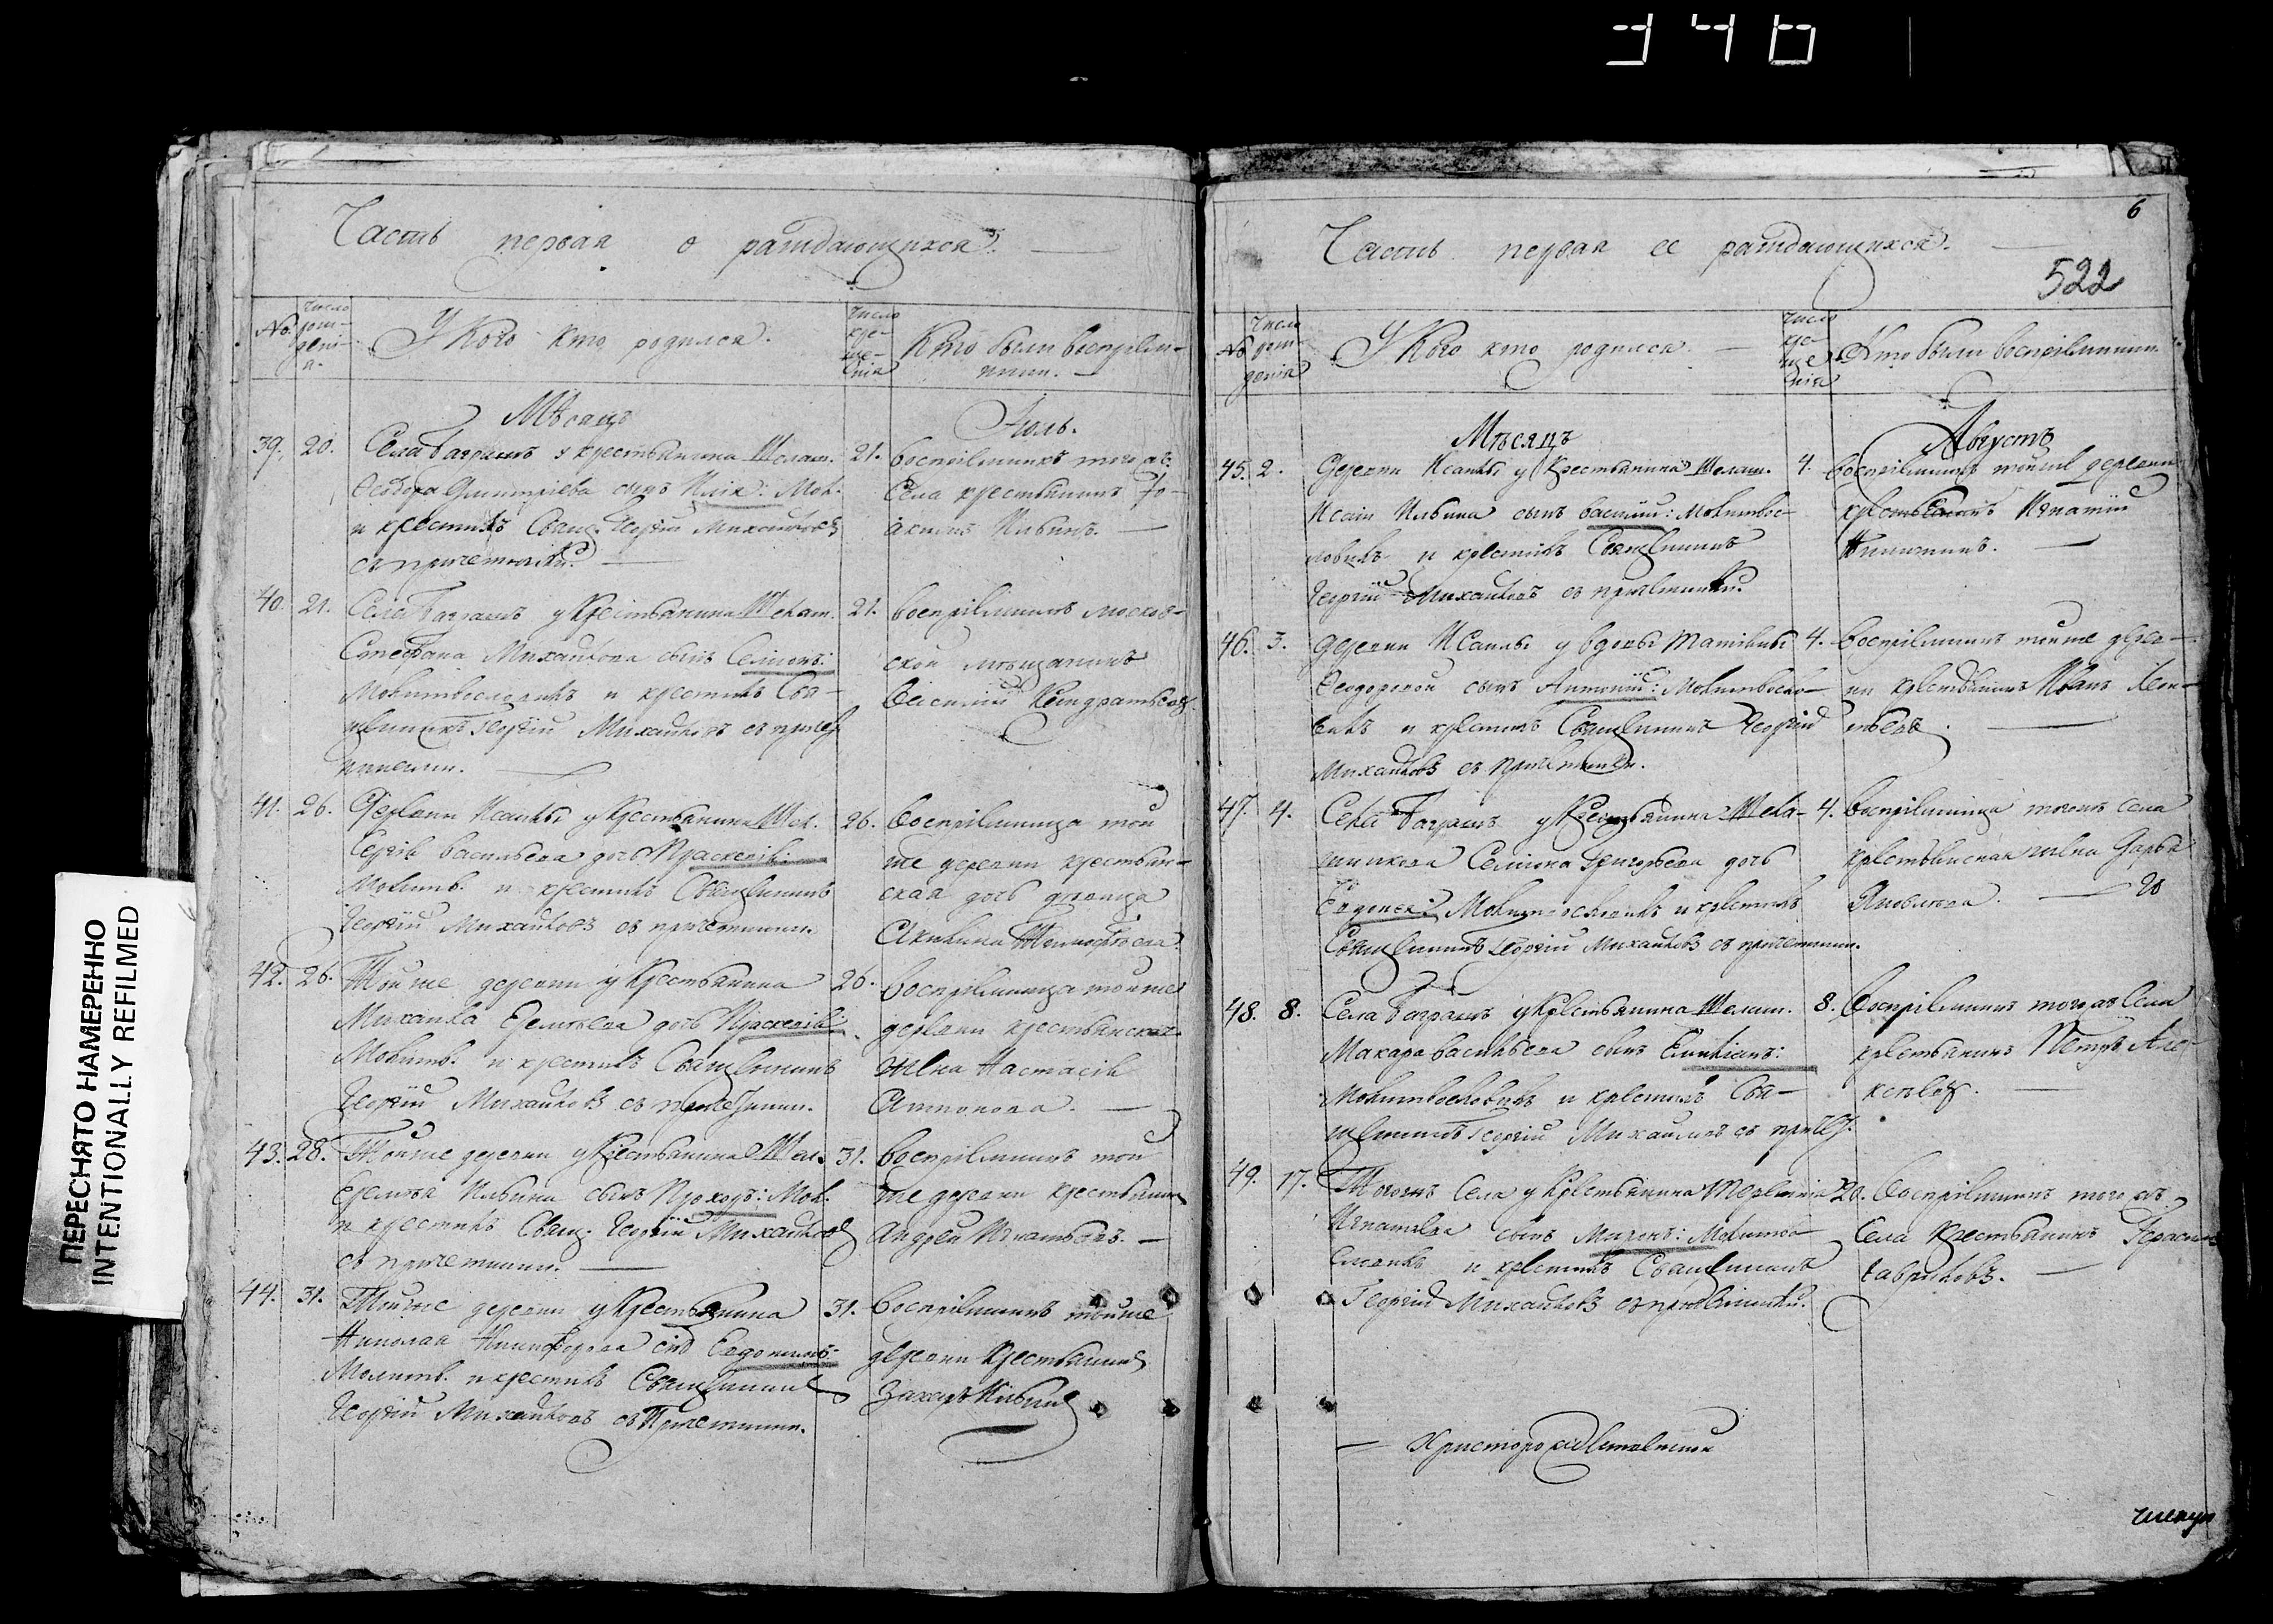 346
ПЕРЕСНЯТО НАМЕРЕННО
INTENTIONALLY REFILMED
Часть первая о раждающихся.
№
Число рож-денi-я.
У Кого кто родился.
Число кре-ще-нiя
Кто были воспрiем-ники.
Мѣсяцъ
Iюль.
39. 20.
Села Баграшъ у крестьянина Шелаш.
Ѳеодора Димитрiева сынъ Илiя: Мол.
и крестилъ Свящ. Георгiй Михайловъ
съ причетники.
21.
воспрiемникъ тогожъ
Села крестьянинъ Iо-
акимъ Ильинъ.
40. 21.
Села Баграшъ у крестьянина Шелаш.
Стефана Михайлова сынъ Семiонъ:
Молитвословилъ и крестилъ Свя-
щенникъ Георгiй Михайловъ съ приче
тниками.
21.
воспрiемникъ москов-
ской мѣщанинъ
Василiй Кондратьевъ.
41. 26.
Деревни Исаикы у крестьянина Шел.
Сергiя Васильева дочь Праскевiя:
Молитв. и крестилъ Священникъ
Георгiй Михайловъ съ причетники.
26.
Воспрiемница той
же деревни крестьян-
ская дочь дѣвица
Акилина Тимофѣева.
42. 26.
Тойже деревни у крестьянина
Михаила Еремѣева дочь Праскевiя:
Молитв. и крестилъ Священникъ
Георгiй Михайловъ съ причетники.
26.
воспрiемница тойже
деревни крестьянская
жена Настасiя
Антонова.
43. 28.
Тойже деревни у крестьянина Шел.
Еремѣя Ильина сынъ Прохоръ: Мол.
и крестилъ Свящ. Георгiй Михайловъ
съ причетники.
31.
воспрiемникъ той
же деревни крестьянинъ
Андрей Игнатьевъ.
44. 31.
Тойже деревни у крестьянина
Николая Никифорова сынъ Евдокимъ:
Молитв. и крестилъ Священникъ
Георгiй Михайловъ съ Причетники.
31.
воспрiемникъ тойже
деревни крестьянинъ
Захаръ Ильинъ
6
Часть первая о раждающихся.
522
№
Число рож-денiя
У Кого кто родился.
Число кре-ще-нiя
Кто были воспрiемники.
Мѣсяцъ
Августъ
45. 2.
Деревни Исаикы у крестьянина Шелаш.
Исаiи Ильина сынъ Василiй: Молитвос-
ловилъ и крестилъ Священникъ
Георгiй Михайловъ съ причетники.
4.
воспрiемникъ тойже деревни
крестьянинъ Игнатiй
Никитинъ.
46. 3.
Деревни Исаикы у вдовы Татiяны
Ѳеодоровой сынъ Антонiй: Молитвосло-
вилъ и крестилъ Священникъ Георгiй
Михайловъ съ причетники.
4.
Воспрiемникъ тойже дерев-
ни крестьянинъ Иванъ Леон-
тьевъ.
47. 4.
Села Баграшъ у крестьянина Шела-
шникова Семiона Григорьева дочь
Евдокiя: Молитвословилъ и крестилъ
Священникъ Георгiй Михайловъ съ причетники.
4.
Воспрiемница тогожъ Села
крестьянская жена Дарья
Яковлева.
48. 8.
Села Баграшъ у крестьянина Шелаш.
Макара Васильева сынъ Емилiанъ:
Молитвословилъ и крестилъ Свя-
щенникъ Георгiй Михайловъ съ приче.
8.
Воспрiемникъ тогожъ Села
крестьянинъ Петръ Але-
ксѣевъ.
49. 17.
Тогожъ Села у крестьянина Терентiя
Игнатьева сынъ Миронъ: Молитво-
словилъ и крестилъ Священникъ
Георгiй Михайловъ съ причетники.
20.
Воспрiемникъ тогожъ
Села крестьянинъ Герасимъ
Гавриловъ.
Христорождественской